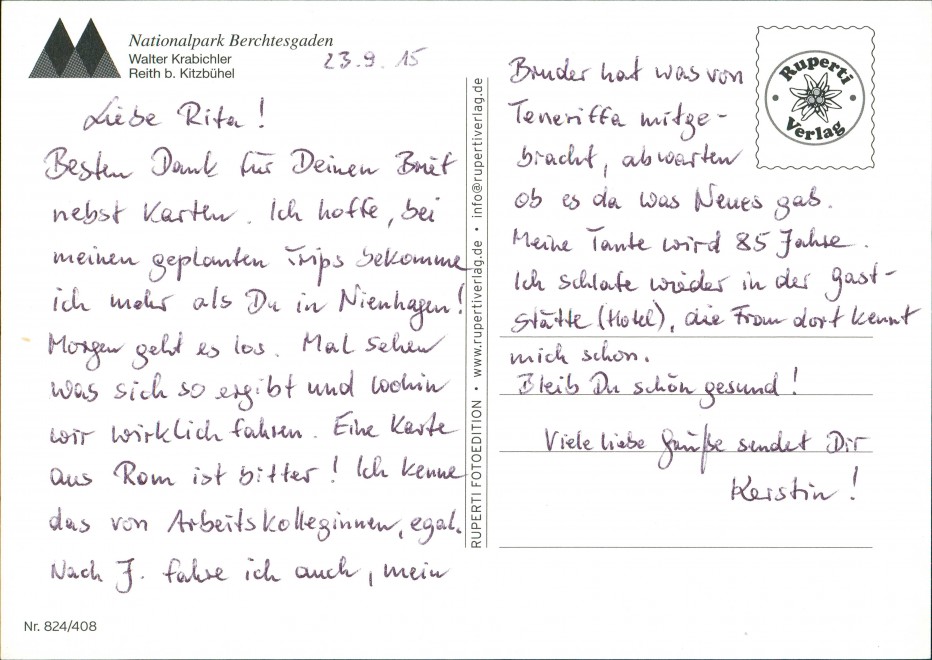 Nationalpark Berchtesgaden
Walter Krabichler
Reith b. Kitzbühel
23.9.15
Liebe Rita!
Besten Dank für Deinen Brief
nebst Karten. Ich hoffe, bei
meinen geplanten Trips bekomme
ich mehr als Du in Nienhagen!
Morgen geht es los. Mal sehen
was sich so ergibt und wohin
wir wirklich fahren. Eine Karte
aus Rom ist bitter! Ich kenne
das von Arbeitskolleginnen, egal.
Nach J. fahre ich auch, mein
Nr. 824/408
RUPERTI FOTOEDITION • www.rupertiverlag.de • info@rupertiverlag.de
Ruperti
Verlag
Bruder hat was von
Teneriffa mitge-
bracht, abwarten
ob es da was Neues gab.
Meine Tante wird 85 Jahre.
Ich schlafe wieder in der Gast-
stätte (Hotel), die Frau dort kennt
mich schon.
Bleib Du schön gesund!
Viele liebe Grüße sendet Dir
Kerstin!